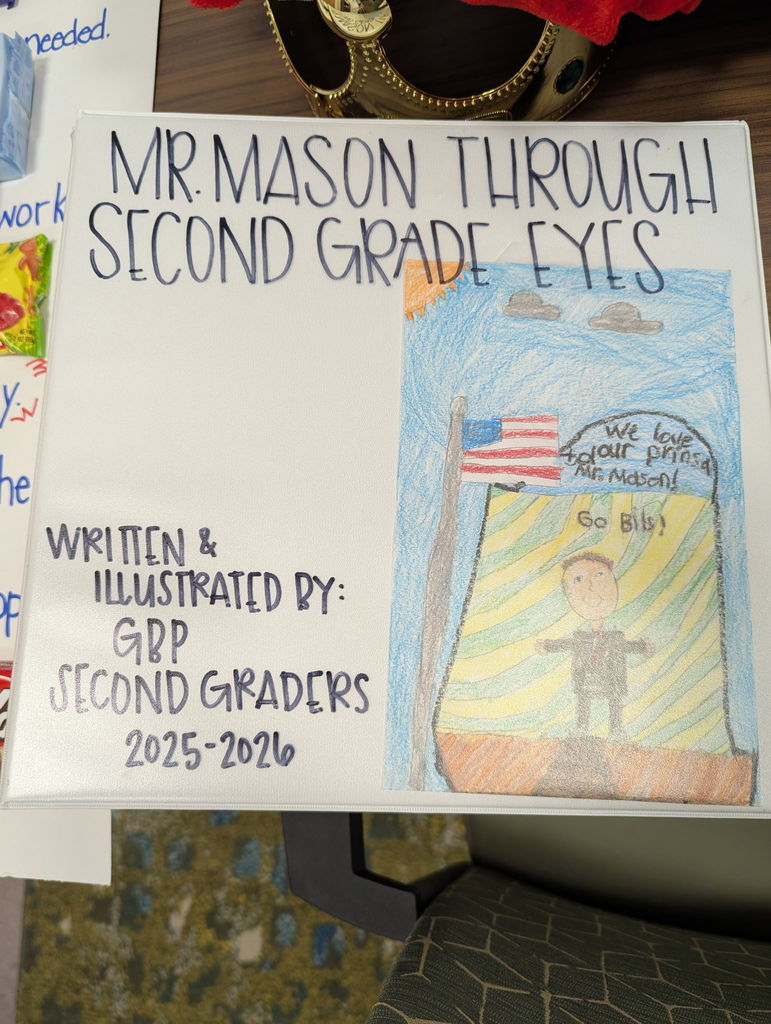 needed.
work
MR. MASON THROUGH
SECOND GRADE EYES
y.
he
We love
our prinsa
tdl
Mr. Mason!
Go Bils!
WRITTEN &
ILLUSTRATED BY:
GBP
SECOND GRADERS
2025-2026